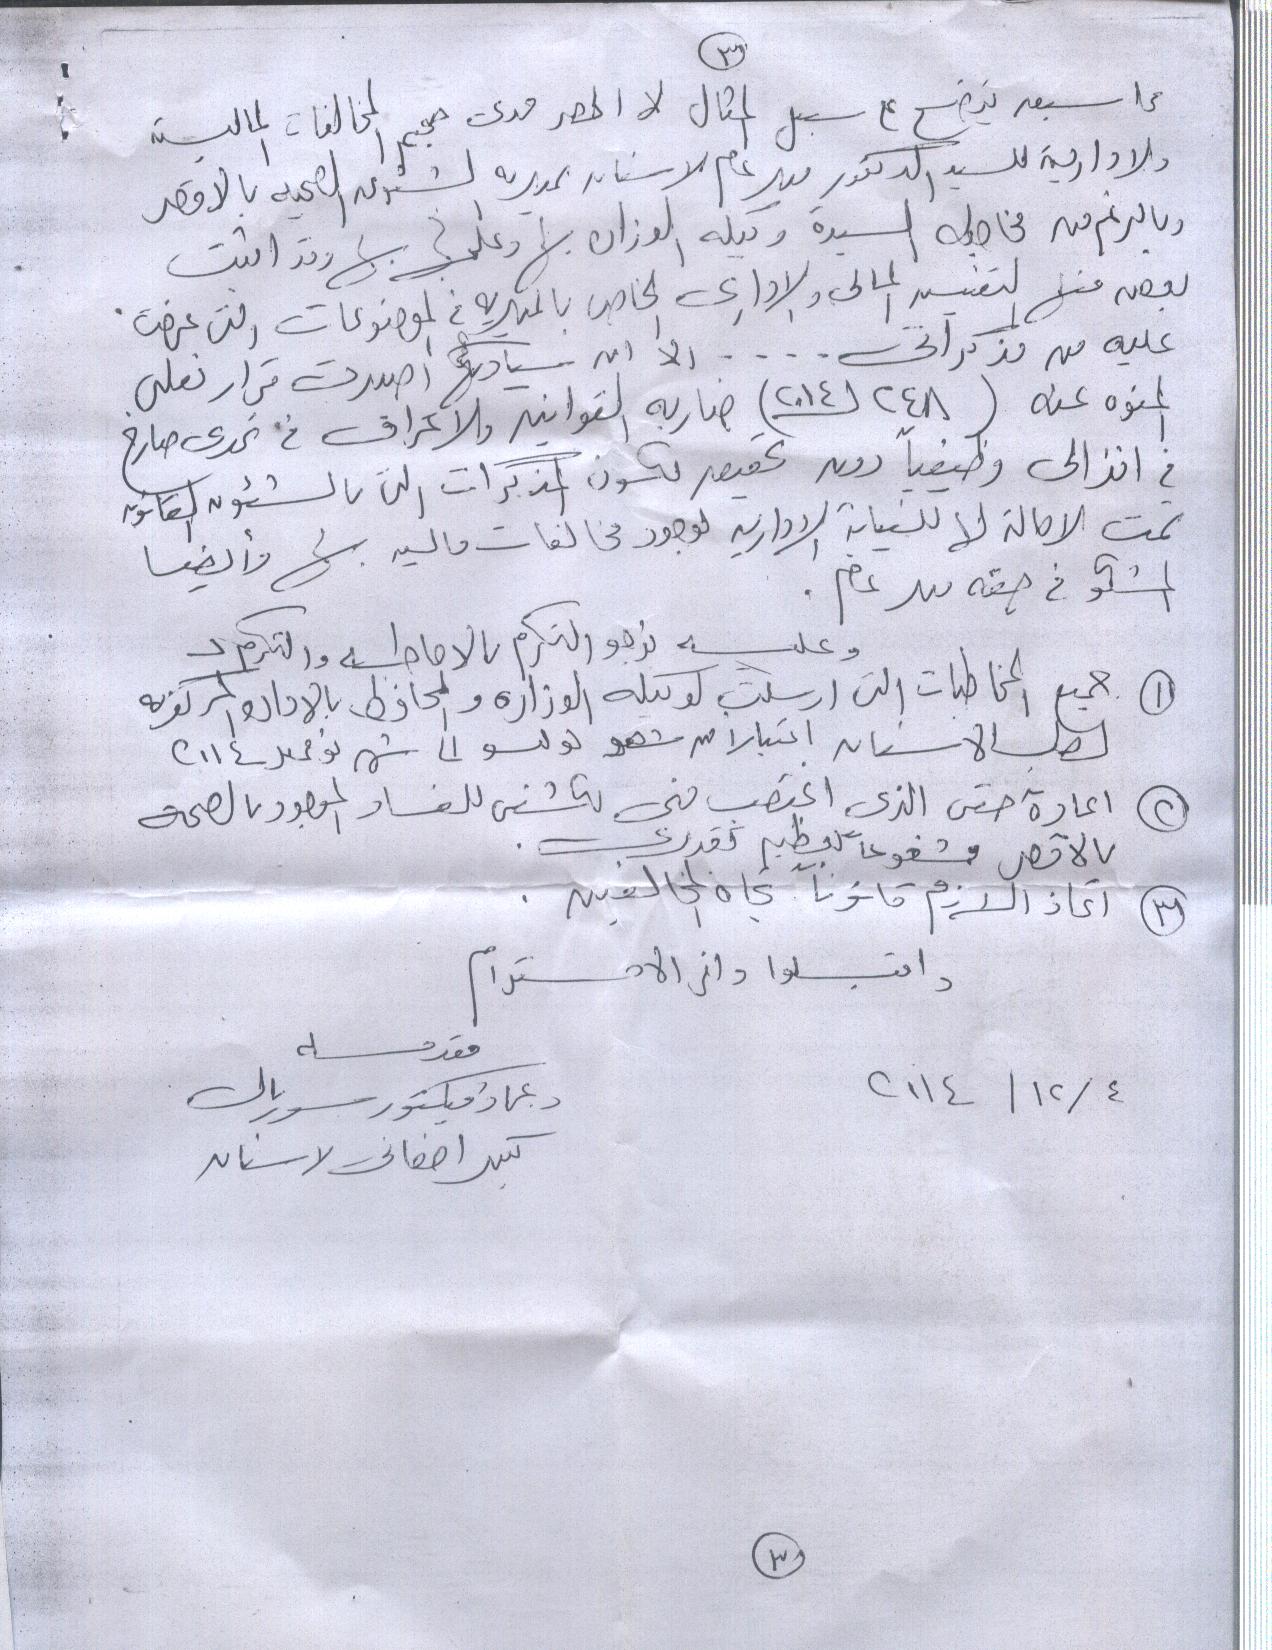 ٣
مما سبق يتضح على سبيل المثال لا الحصر مدى حجم المخالفات المالية
والادارية للسيد الدكتور مدير عام الاسنان بمديرية الشئون الصحية بالاقصر
وبالرغم من مخاطبة السيدة وكيلة الوزارة بها وعلمها بها وقد اثبت
بعض منها التفتيش المالى والادارى الخاص بالمديرية فى الموضوعات التى عرضت
عليه من مذكراتى ..... الا ان سيادتها أصدرت قرار نقلى
المنوه عنه (٢٤٨ لـ ٢٠١٤) ضاربة القوانين والاعراف فى تحدى صارخ
فى انزالى وظيفياً دون تحقيق لتكون المذكرات التى بالشئون القانونية
تمت الاحالة لها للنيابة الادارية لوجود مخالفات مالية بها وأيضا
المشكو فى حقه مدير عام .
وعليه نرجو التكرم بالاحاطه والتكرم بـ
١ جميع المخاطبات التى ارسلت لوكيلة الوزارة والمحافظ بالادارة المركزية
لطب الاسنان اعتبارا من شهر يوليو الى شهر نوفمبر ٢٠١٤
٢ اعادة حقى الذى اغتصب منى لكشفى للفساد الموجود بالصحة
بالاقصر مشفوعا بتعظيم قدرى .
٣ اتخاذ اللازم قانوناً تجاه المخالفين .
واقبلوا وافر الاحترام
مقدمه
٤ / ١٢ / ٢٠١٤
د عماد فيكتور سوريال
كبير اخصائى اسنان
٣